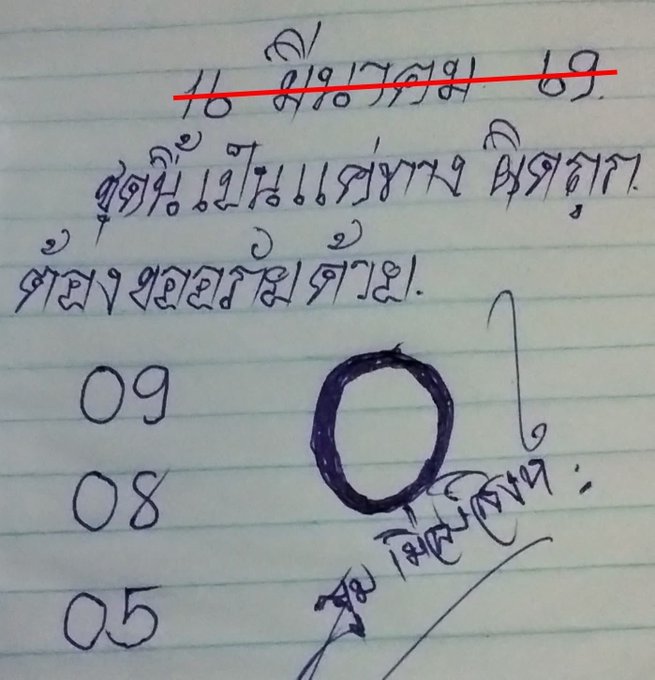 16 มีนาคม 69.
ชุดนี้เป็นแค่ทาง ผิดถูก.
ต้องขออภัยด้วย.
09
08
05
0